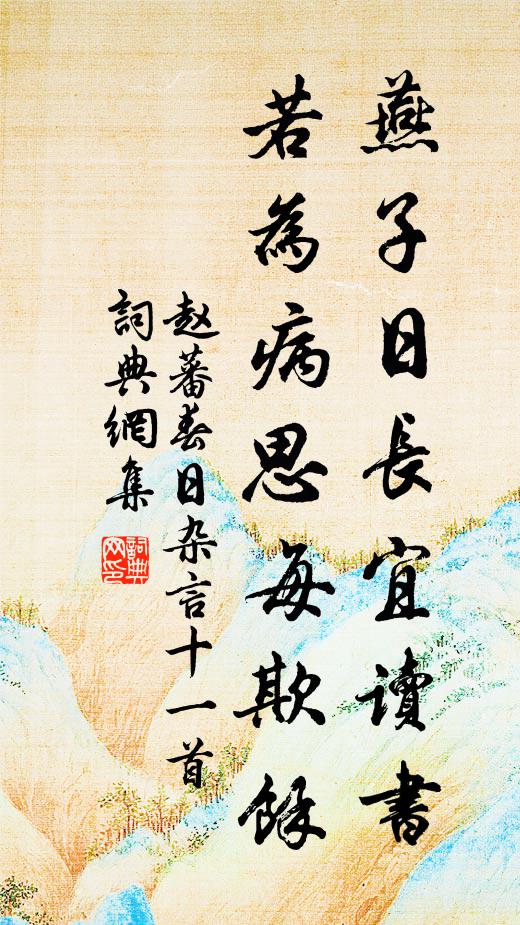 燕子日長宜讀書
若為病思每欺餘
赵蕃春日杂言十一首
詞典網集
詞典
网印